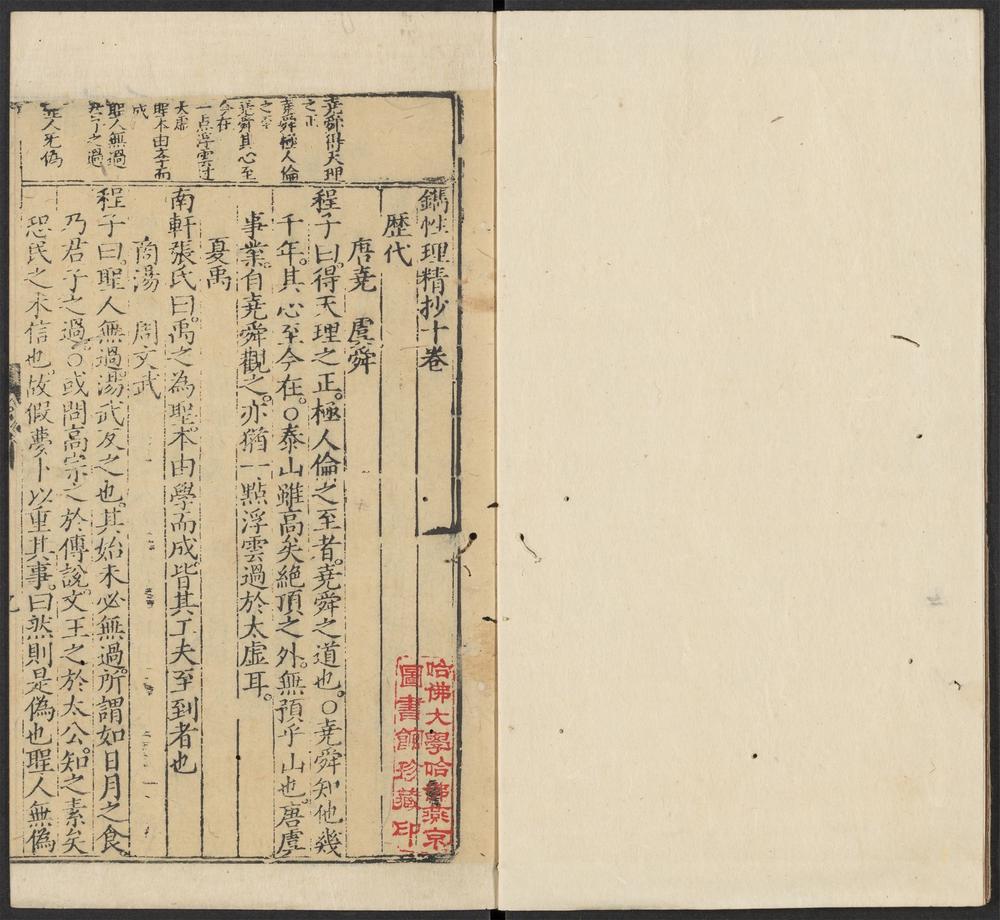 鐫性理精抄十卷
歷代
唐堯　虞舜
程子曰。得天理之正。極人倫之至者。堯舜之道也。○堯舜知他幾
千年。其心至今在。○泰山雖高矣絶頂之外。無預乎山也。唐虞
事業。自堯舜觀之。亦猶一點浮雲過於太虛耳。
夏禹
南軒張氏曰。禹之為聖。本由學而成。皆其工夫至到者也
商湯　周文武
程子曰。聖人無過。湯武反之也。其始未必無過。所謂如日月之食。
乃君子之過。○或問高宗之於傅說。文王之於太公。知之素矣
恐民之未信也。故假夢卜以重其事。曰然則是偽也聖人無偽
堯舜得天理
之正
堯舜極人倫
之至
堯舜其心至
今在
一点浮雲过
太虛
聖本由学而
成
聖人無過
君子之過
聖人无偽
哈佛大學哈佛燕京
圖書館珍藏印